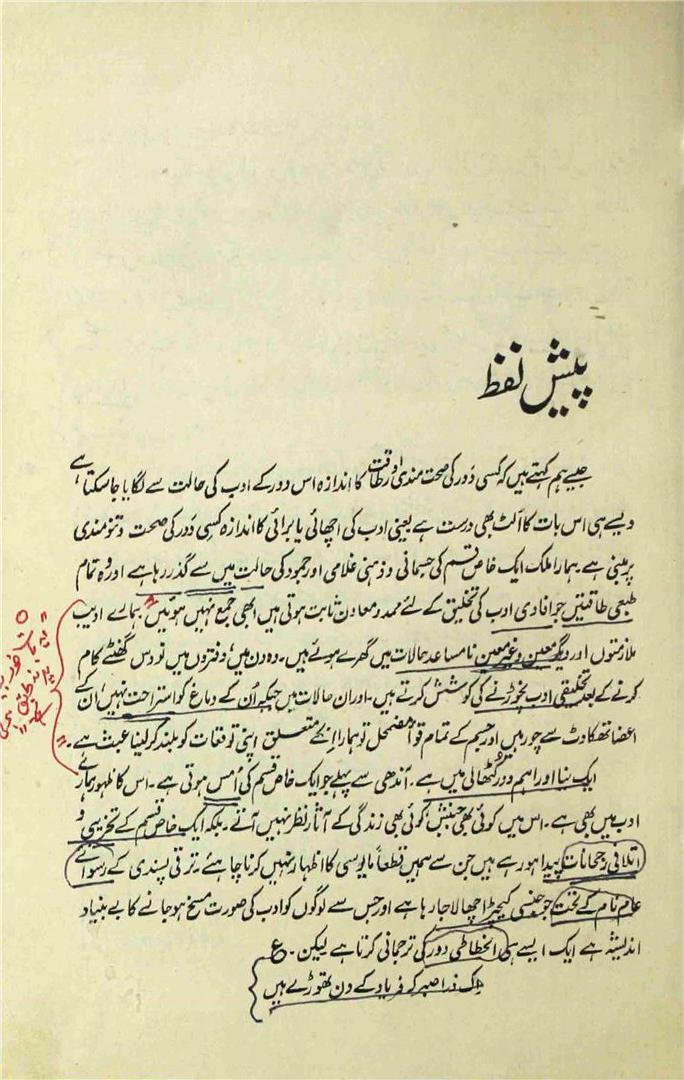 پیش لفظ
جیسے ہم کہتے ہیں کہ کسی دَور کی صحت مندی اور طاقت کا اندازہ اس دور کے ادب کی حالت سے لگایا جاسکتا ہے
ویسے ہی اس بات کا اُلٹ بھی درست ہے یعنی ادب کی اچھائی یا برائی کا اندازہ کسی دَور کی صحت و تنومندی
پر مبنی ہے ۔ ہمارا ملک ایک خاص قسم کی جسمانی و ذہنی غلامی اور جمود کی حالت میں سے گذر رہا ہے اور وُہ تمام
طبعی طاقتیں جو افادی ادب کی تخلیق کے لئے ممد و معاون ثابت ہوتی ہیں ابھی جمع نہیں ہوئیں ۔ ہمارے ادیب
ملازمتوں اور دیگر معین و غیر معین نا مساعد حالات میں گھرے ہوئے ہیں ۔ وہ دن میں، دفتروں میں نو دس گھنٹے کام
کرنے کے بعد تخلیقی ادب نچوڑنے کی کوشش کرتے ہیں ۔ اور ان حالات میں جبکہ اُن کے دماغ کو استراحت نہیں، ان کے
اعضا تھکاوٹ سے چور ہیں اور جسم کے تمام قوا مضمحل تو ہمارا انکے متعلق اپنی توقعات کو بلند کر لینا عبث ہے ۔
ایک نیا اور اہم دور کُٹھالی میں ہے ۔ آندھی سے پہلے جو ایک خاص قسم کی اُمس ہوتی ہے ۔ اس کا ظہور ہمارے
ادب میں بھی ہے ۔ اس میں کوئی بھی جنبش، کوئی بھی زندگی کے آثار نظر نہیں آتے ۔ بلکہ ایک خاص قسم کے تخریبی و
اتلافی رجحانات پیدا ہو رہے ہیں جن سے ہمیں قطعاً مایوسی کا اظہار نہیں کرنا چاہئے ۔ ترقی پسندی کے رسوائے
عام نام کے تحت جو جنسی کیچڑ اچھالا جا رہا ہے اور جس سے لوگوں کو ادب کی صورت مسخ ہو جانے کا بے بنیاد
اندیشہ ہے ایک ایسے ہی انحطاطی دور کی ترجمانی کرتا ہے لیکن ۔ ع
اک ذرا صبر کہ فریاد کے دن تھوڑے ہیں